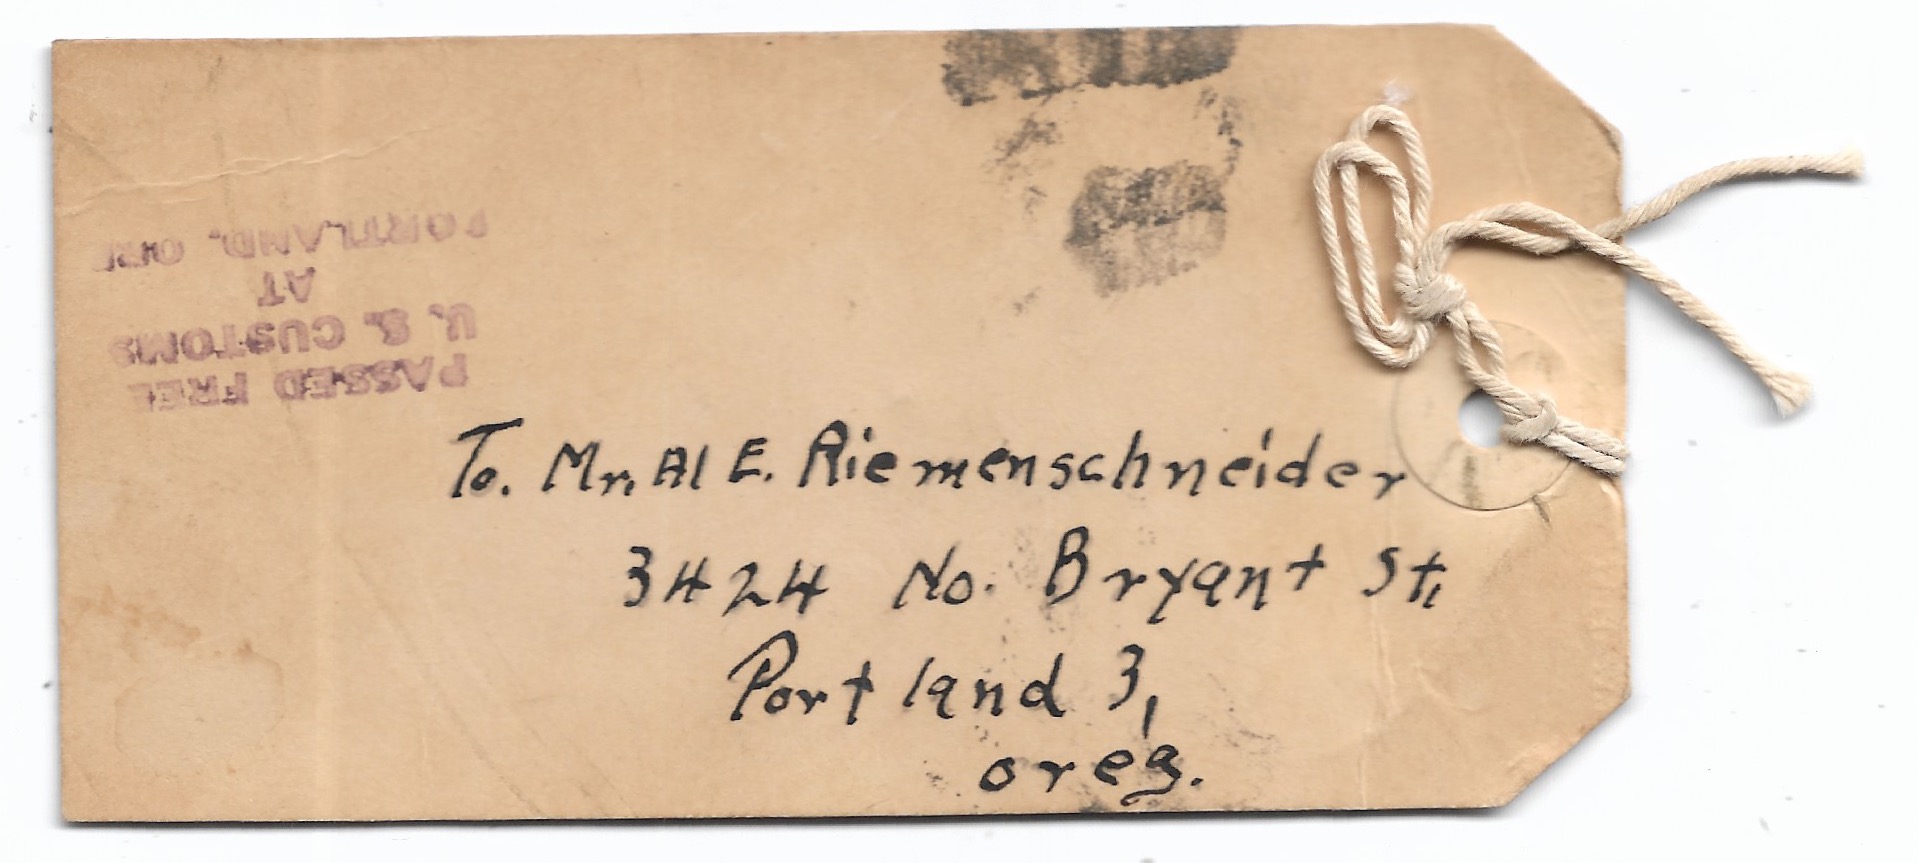 PASSED FREE
U. S. CUSTOMS
AT
PORTLAND, ORE
To. Mr. Al E. Riemenschneider
3424 No. Bryant St.
Portland 3,
oreg.